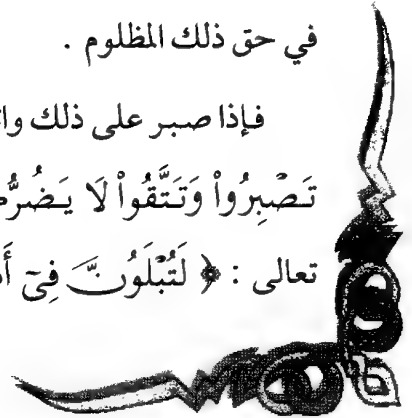 في حق ذلك المظلوم .
فإذا صبر على ذلك
تَصْبِرُواْ وَتَتَّقُواْ لَا
تعالى : ﴿ لَتُبْلَوُنَّ فِىٓ